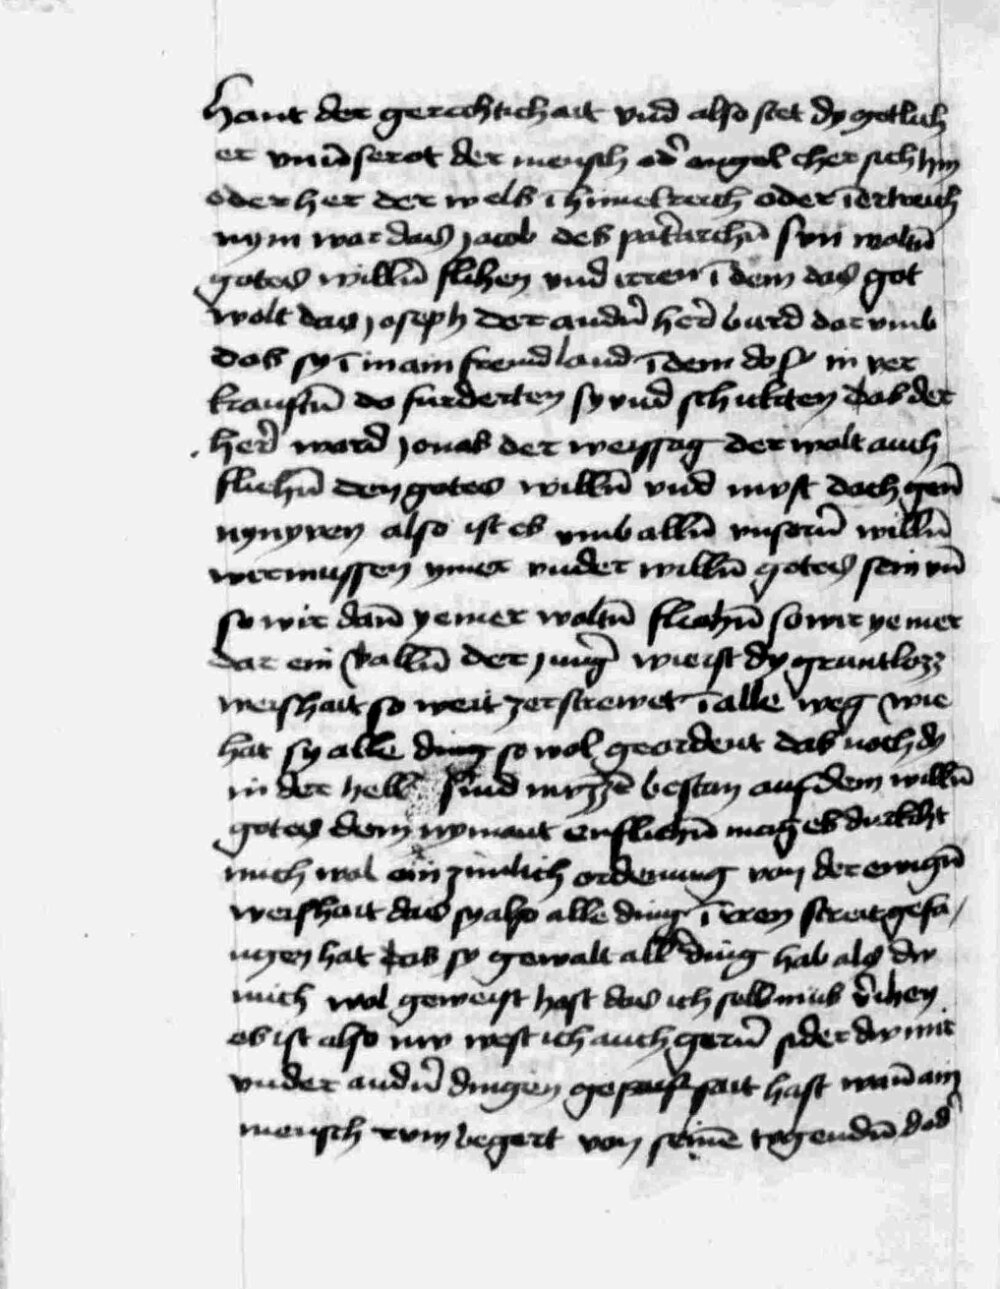 hant der gerechtichait vnd also stet dy gotlich
er vnūserot der mensch od̄ engel cher sich hin
oder her der welb ī himelreich oder ī ertreich
nym war das jacob des pat̄archn̄ sun woltn̄
gotes willn̄ flihen vnd irren ī dem das got
wolt das joseph der andn̄ her̄ burd dar vmb
das sy ī in ain fremd land ī dem do sy in ver
kauftn̄ do furderten sy vnd schikten das der
her̄ ward jonas der weissag der wolt auch
fliehn̄ den gotes willn̄ vnd must doch gen̄
nynyven also ist es vmb alln̄ vnsern̄ willn̄
wir mussen ymer vnder willn̄ gotes sein vn̄
so wir dan̄ yemer woltn̄ fliehn̄ so wir yemer
dar ein valln̄ der junḡ wie ist dy gruntlozz
weishait so weit zerstrewet ī alle weg wie
hat sy alle ding so wol geordent das noch dy
in der hell sind muzzē bestan auf dem willn̄
gotes dem nymant enfliehn̄ mag es dunkcht
mich wol ain zimlich ordenung von der ewign̄
weishait das sy also alle ding ī irren streit gefa/
ngen hat das sy gewalt all ding hab als dw
mich wol geweist hast das ich selb mus v̄ihen
es ist also nw west ich auch gern̄ sider dw mir
vnder andn̄ dingen gesait hast wan̄ ain
mensch rvm begert von seinē tvgendn̄ das̄